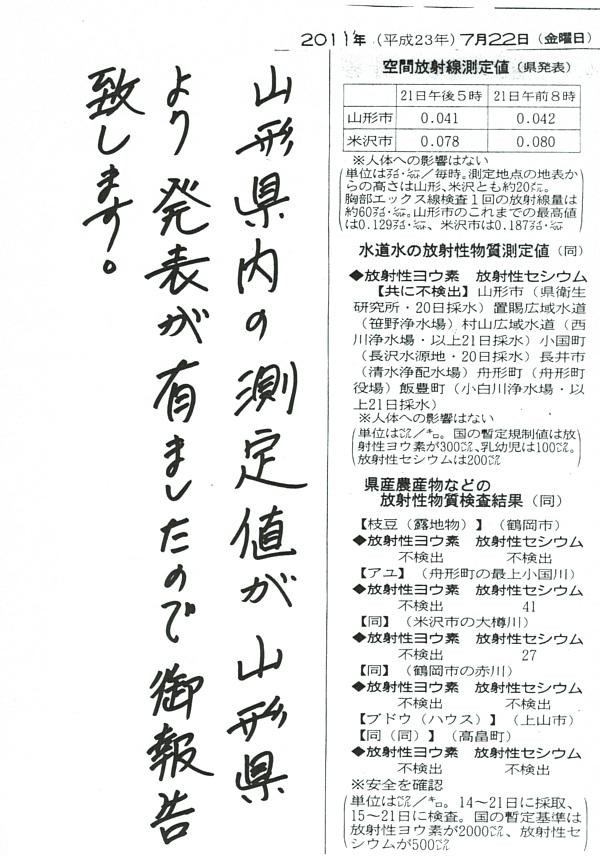 2011年（平成23年）7月22日（金曜日）
空間放射線測定値（県発表）
21日午後5時 21日午前8時
山形市 0.041 0.042
米沢市 0.078 0.080
※人体への影響はない
（単位はマイクロ・シーベルト／毎時。測定地点の地表か
らの高さは山形、米沢とも約20メートル。
胸部エックス線検査1回の放射線量は
約60マイクロ・シーベルト。山形市のこれまでの最高値
は0.129マイクロ・シーベルト、米沢市は0.187マイクロ・シーベルト）
水道水の放射性物質測定値（同）
◆放射性ヨウ素 放射性セシウム
【共に不検出】山形市（県衛生
研究所・20日採水）置賜広域水道
（笹野浄水場）村山広域水道（西
川浄水場・以上21日採水）小国町
（長沢水源地・20日採水）長井市
（清水浄配水場）舟形町（舟形町
役場）飯豊町（小白川浄水場・以
上21日採水）
※人体への影響はない
（単位はベクレル／キロ。国の暫定規制値は放
射性ヨウ素が300ベクレル、乳幼児は100ベクレル。
放射性セシウムは200ベクレル）
県産農産物などの
放射性物質検査結果（同）
【枝豆（露地物）】（鶴岡市）
◆放射性ヨウ素 放射性セシウム
不検出 不検出
【アユ】（舟形町の最上小国川）
◆放射性ヨウ素 放射性セシウム
不検出 41
【同】（米沢市の大樽川）
◆放射性ヨウ素 放射性セシウム
不検出 27
【同】（鶴岡市の赤川）
◆放射性ヨウ素 放射性セシウム
不検出 不検出
【ブドウ（ハウス）】（上山市）
【同（同）】（高畠町）
◆放射性ヨウ素 放射性セシウム
不検出 不検出
※安全を確認
（単位はベクレル／キロ。14〜21日に採取、
15〜21日に検査。国の暫定基準は
放射性ヨウ素が2000ベクレル、放射性セ
シウムが500ベクレル）
山形県内の測定値が山形県
より発表が有ましたので御報告
致します。